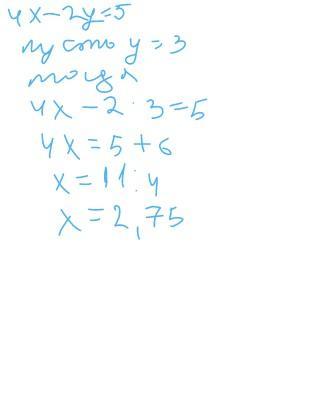 4x-2y=5
пусто y = 3
тогда
4x - 2 · 3 = 5
4x = 5 + 6
x = 11 : 4
x = 2,75